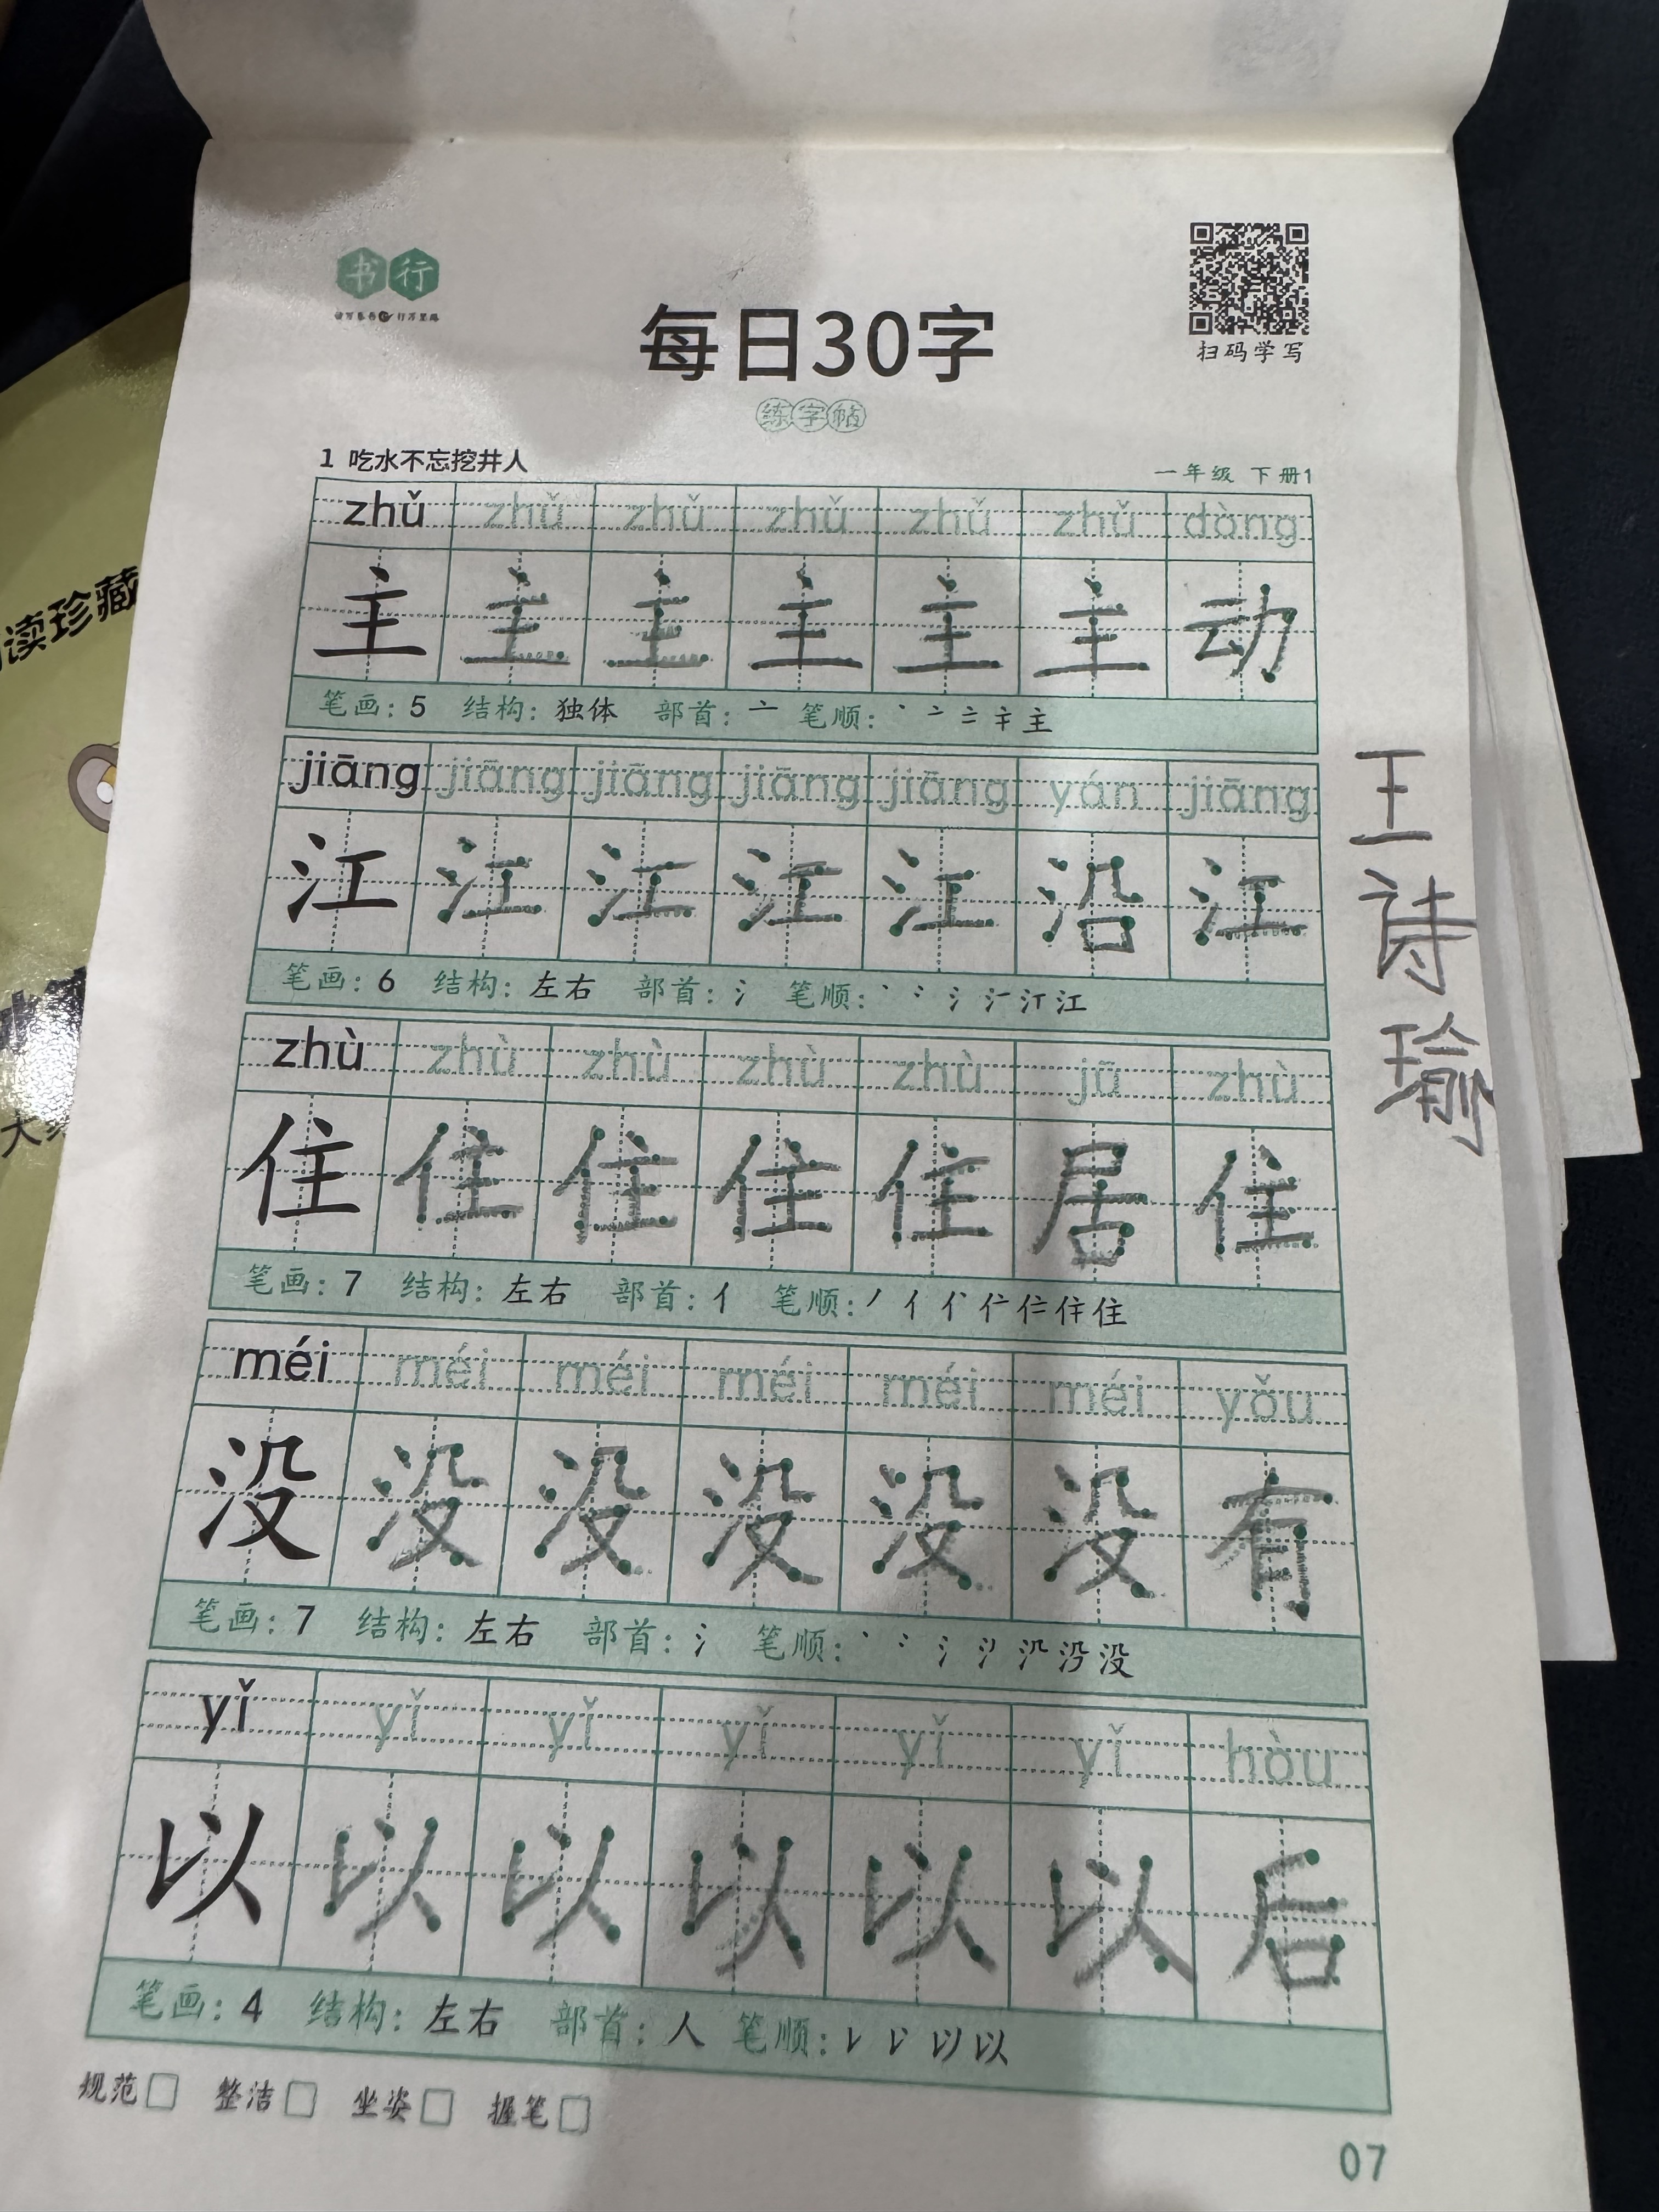 书行
扫码学写
每日30字
练字帖
1 吃水不忘挖井人
一年级 下册1
zhǔ zhǔ zhǔ zhǔ zhǔ zhǔ dòng
主 主 主 主 主 主 动
笔画：5 结构：独体 部首：亠 笔顺：丶 亠 主
jiāng jiāng jiāng jiāng jiāng yán jiāng
江 江 江 江 江 沿 江
笔画：6 结构：左右 部首：氵 笔顺：丶 冫 氵 江
zhù zhù zhù zhù zhù jū zhù
住 住 住 住 住 居 住
笔画：7 结构：左右 部首：亻 笔顺：丿 亻 住
méi méi méi méi méi méi yǒu
没 没 没 没 没 没 有
笔画：7 结构：左右 部首：氵 笔顺：丶 冫 氵 没
yǐ yǐ yǐ yǐ yǐ yǐ hòu
以 以 以 以 以 以 后
笔画：4 结构：左右 部首：人 笔顺：以
规范 整洁 坐姿 握笔
07
王诗瑜
读珍藏
大